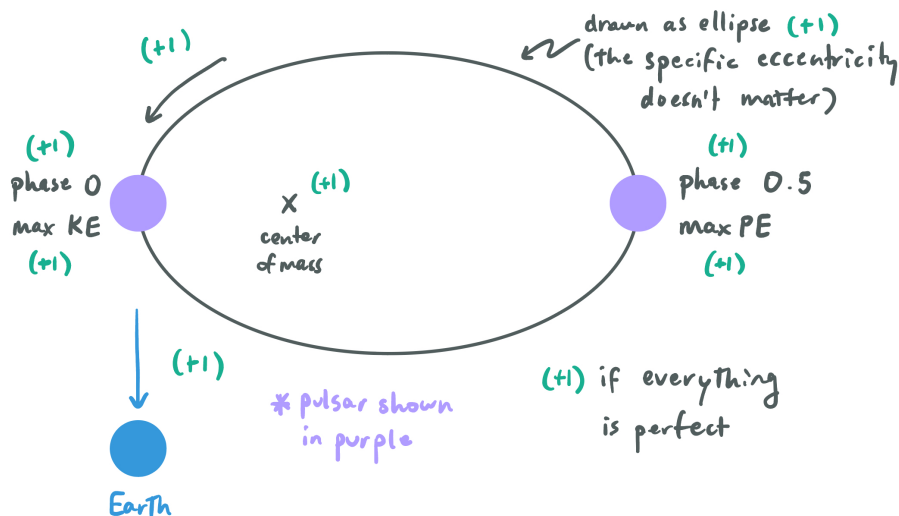 (+1)
drawn as ellipse (+1)
(the specific eccentricity
doesn't matter)
(+1)
phase 0
max KE
(+1)
(+1)
x
center
of mass
(+1)
phase 0.5
max PE
(+1)
(+1)
* pulsar shown
in purple
(+1) if everything
is perfect
Earth